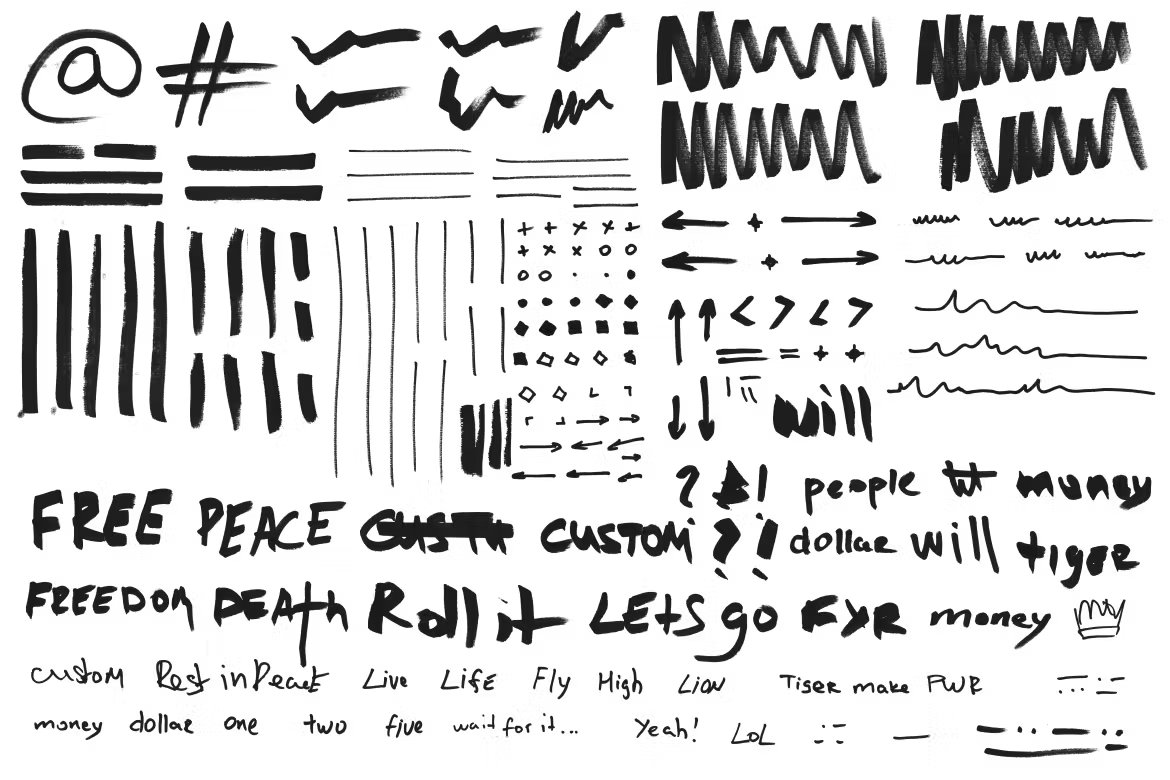 @ #
will
? ! people money
FREE PEACE CUSTOM ? ! dollar will tiger
FREEDOM DEATH Roll it LETS go FYR money
CUSTOM Rest in Peace Live LIFE Fly High LION TIGER make PWR
money dollar one two five wait for it... Yeah! LOL